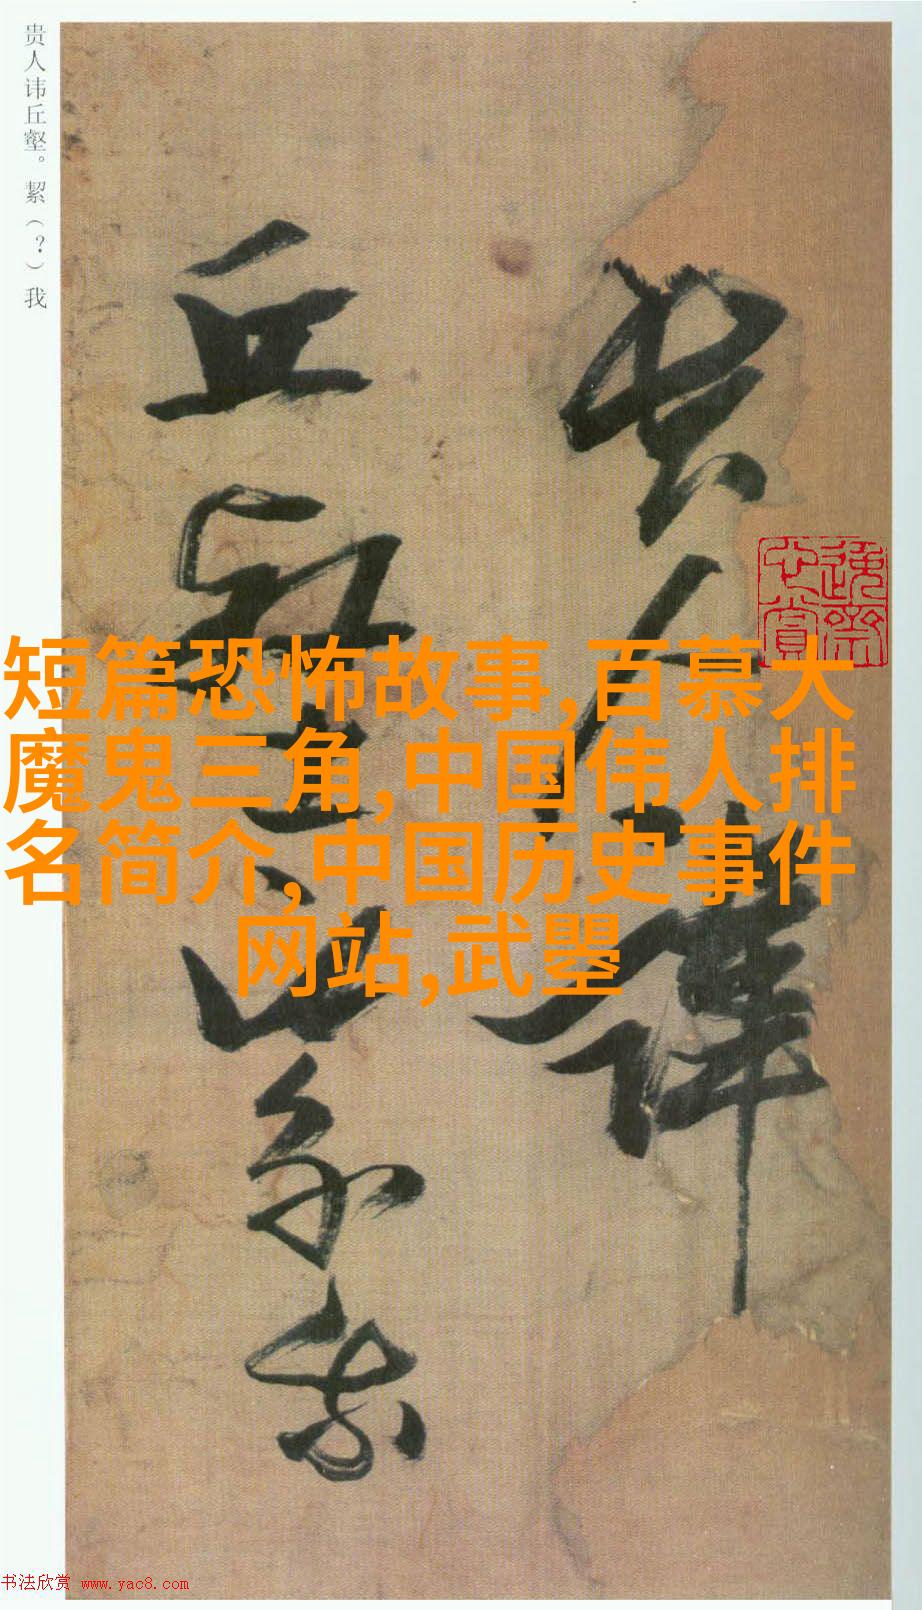 贵人讳丘壑。絜（？）我
貴人諱
丘壑
我
短篇恐怖故事,百慕大
魔鬼三角,中国伟人排
名简介,中国历史事件
网站,武曌
书法欣赏 www.yac8.com